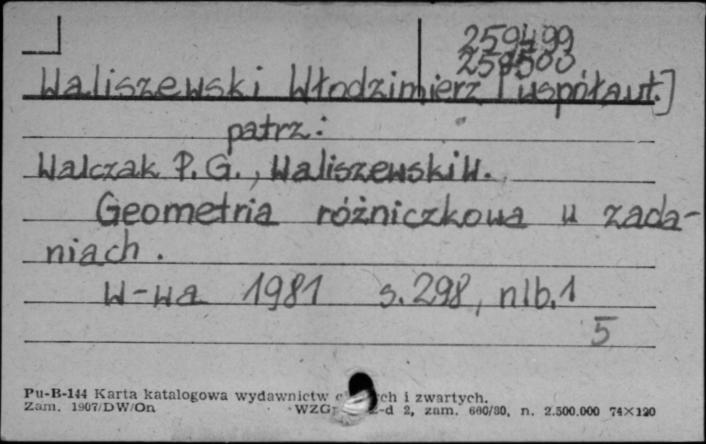 259499
259500
Waliszewski Włodzimierz [współaut.]
patrz:
Walczak P. G., Waliszewski W.
Geometria różniczkowa w zada-
niach.
W-wa 1981 s. 298, nlb. 1
5
Pu-B-144 Karta katalogowa wydawnictw i zwartych.
Zam. 1907/DW/On WZGr z-d 2, zam. 660/80, n. 2.500.000 74×120